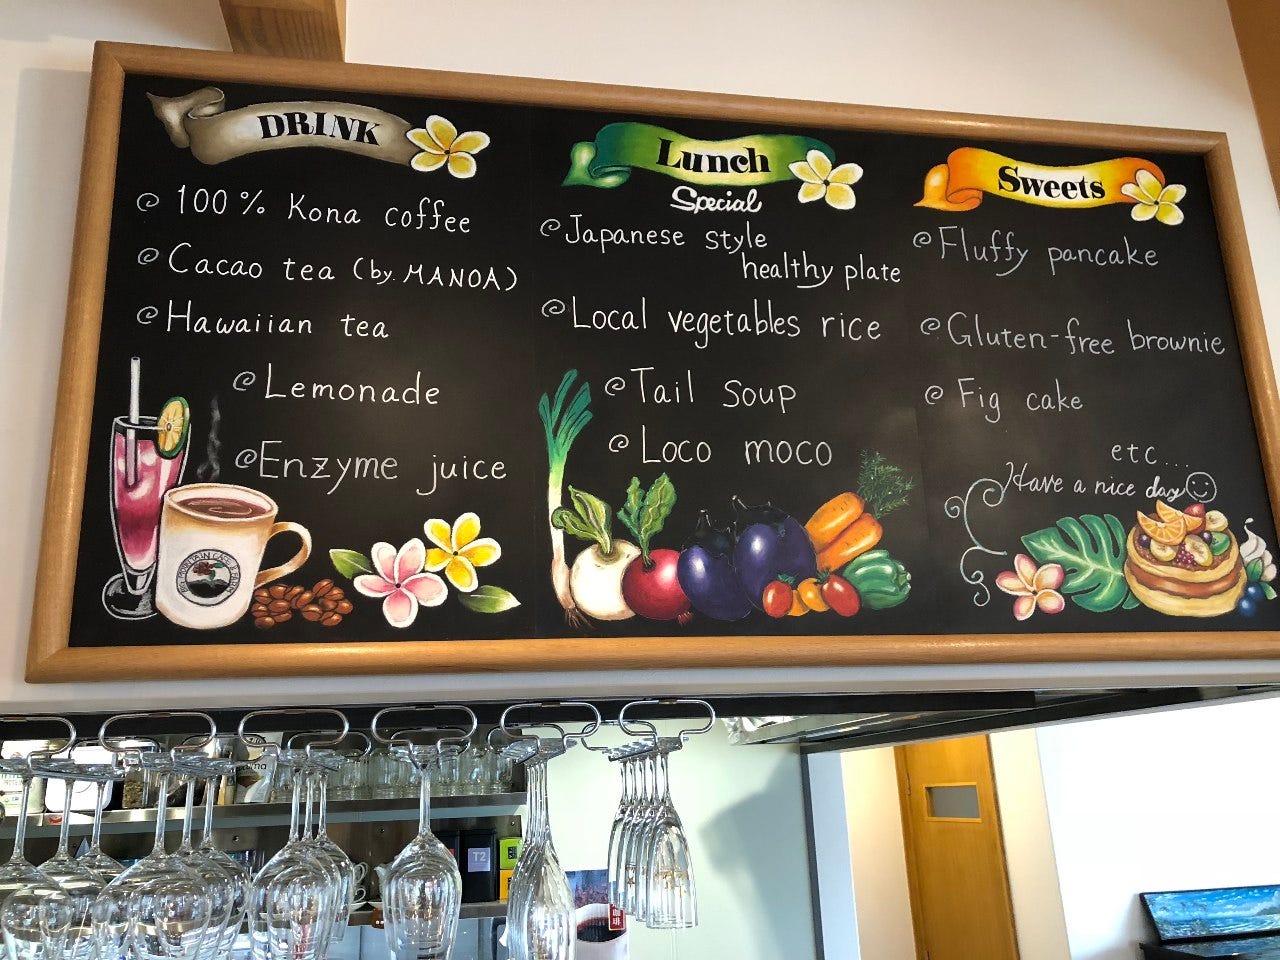 DRINK
100% Kona coffee
Cacao tea (by. MANOA)
Hawaiian tea
Lemonade
Enzyme juice
Lunch
Special
Japanese style
healthy plate
Local vegetables rice
Tail Soup
Loco moco
Sweets
Fluffy pancake
Gluten-free brownie
Fig cake
etc...
Have a nice day
T2